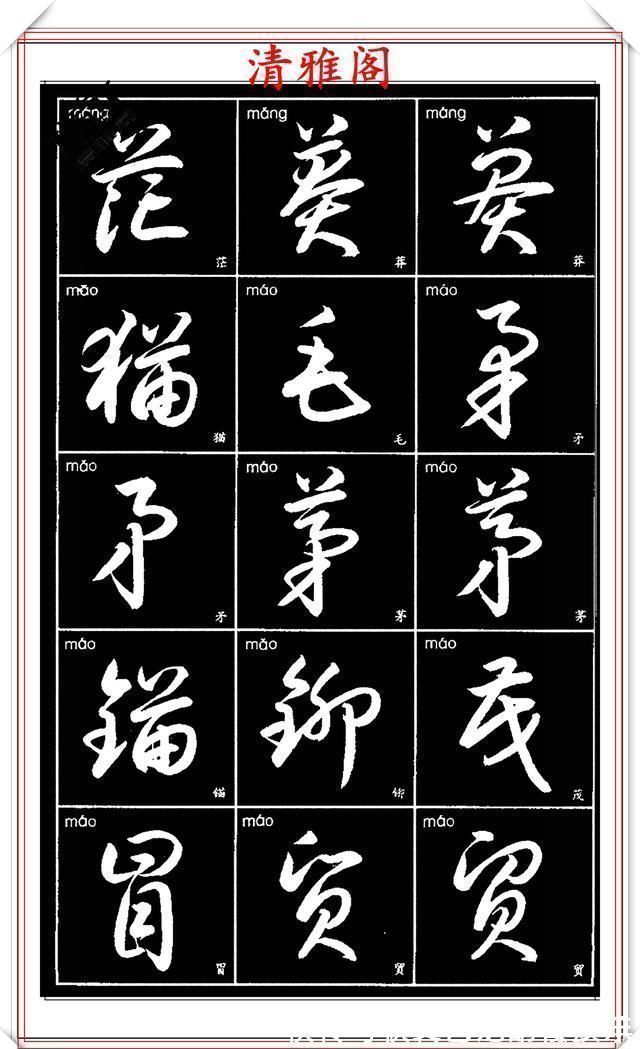 清雅阁
máng mǎng máng
茫 莽 莽
茫 莽 莽
māo máo máo
猫 毛 矛
猫 毛 矛
mǎo máo máo
矛 茅 茅
矛 茅 茅
máo mǎo máo
锚 铆 茂
锚 铆 茂
máo máo máo
冒 贸 贸
冒 贸 贸